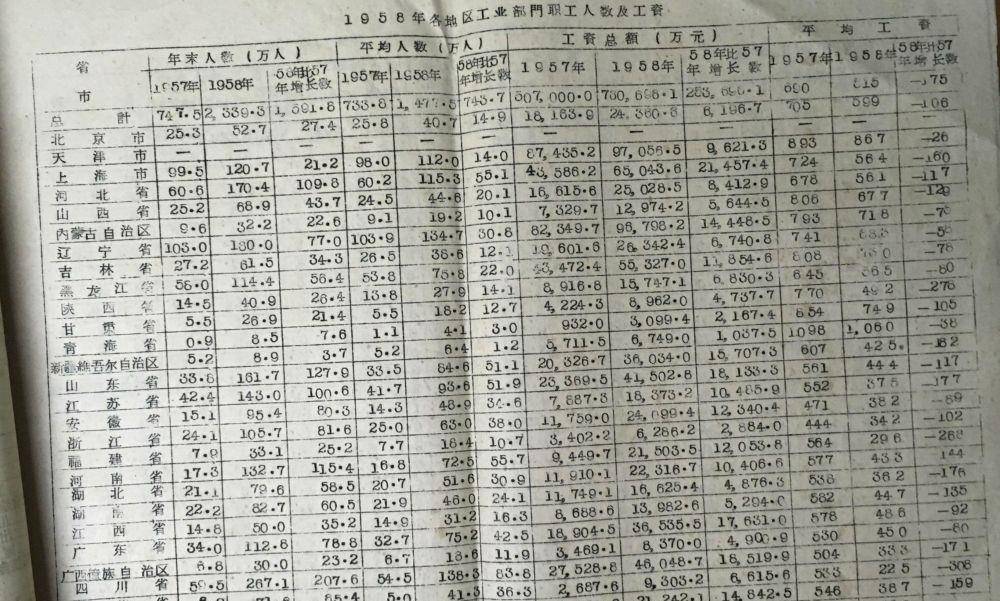 1958年各地区工业部門职工人数及工資
省 市 年末人数(万人) 平均人数(万人) 工資总額(万元) 平均工資
1957年 1958年 58年比57年增长数 1957年 1958年 58年比57年增长数 1957年 1958年 58年比57年增长数 1957年 1958年 58年比57年增长数
总計 747.5 2,339.3 1,591.8 733.8 1,477.5 743.7 507,000.0 760,698.1 253,698.1 690 515 —175
北京市 25.3 52.7 27.4 25.8 40.7 14.9 18,163.9 24,360.6 6,196.7 705 599 —106
天津市 — — — — — — — — — — — —
上海市 99.5 120.7 21.2 98.0 112.0 14.0 87,435.2 97,056.5 9,621.3 893 867 —26
河北省 60.6 170.4 109.8 60.2 115.3 55.1 43,586.2 65,043.6 21,457.4 724 564 —160
山西省 25.2 68.9 43.7 24.5 44.6 20.1 16,615.6 25,028.5 8,412.9 678 561 —117
内蒙古自治区 9.6 32.2 22.6 9.1 19.2 10.1 7,329.7 12,974.2 5,644.5 806 677 —129
辽宁省 103.0 180.0 77.0 103.9 134.7 30.8 82,349.7 96,798.2 14,448.5 793 718 —75
吉林省 27.2 61.5 34.3 26.5 38.6 12.1 19,601.6 26,342.4 6,740.8 741
黑龙江省 58.0 114.4 56.4 53.8 75.8 22.0 43,472.4 55,327.0 11,854.6 808 —78
陕西省 14.5 40.9 26.4 13.8 27.9 14.1 8,916.8 15,747.1 6,830.3 645 565 —80
甘肃省 5.5 26.9 21.4 5.5 18.2 12.7 4,224.3 8,962.0 4,737.7 770 492 —278
青海省 0.9 8.5 7.6 1.1 4.1 3.0 932.0 3,099.4 2,167.4 854 749 —105
新疆維吾尔自治区 5.2 8.9 3.7 5.2 6.4 1.2 5,711.5 6,749.0 1,037.5 1098 1,060 —38
山东省 33.8 161.7 127.9 33.5 84.6 51.1 20,326.7 36,034.0 15,707.3 607 425 —182
江苏省 42.4 143.0 100.6 41.7 93.6 51.9 23,369.5 41,502.8 18,133.3 561 444 —117
安徽省 15.1 95.4 80.3 14.3 48.9 34.6 7,887.3 18,373.2 10,485.9 552 375 —177
浙江省 24.1 105.7 81.6 25.0 63.0 38.0 11,759.0 24,099.4 12,340.4 471 382 —89
福建省 7.9 33.1 25.2 7.7 18.4 10.7 3,402.2 6,286.2 2,884.0 444 342 —102
河南省 17.3 132.7 115.4 16.8 72.5 55.7 9,449.7 21,503.5 12,053.8 564 296 —268
湖北省 21.1 79.6 58.5 20.7 51.6 30.9 11,910.1 22,316.7 10,406.6 577 433 144
湖南省 22.2 82.7 60.5 21.9 46.0 24.1 11,749.1 16,625.4 4,876.3 538 362 —176
江西省 14.8 50.0 35.2 14.9 31.2 16.3 8,688.6 13,982.6 5,294.0 582 447 —135
广东省 34.0 112.8 78.8 32.7 75.2 42.5 18,904.5 36,535.5 17,631.0 578 486 —92
广西僮族自治区 6.8 30.0 23.2 6.7 18.6 11.9 3,469.1 8,370.0 4,900.9 530 450 —80
四川省 59.5 267.1 207.6 54.5 138.3 83.8 27,528.8 46,048.7 18,519.9 504 333 —171
5.0 41.3 36.3 2,687.6 9,303.2 6,615.6 533 225 —308
21,242.1 14,842.5 546 387 —159